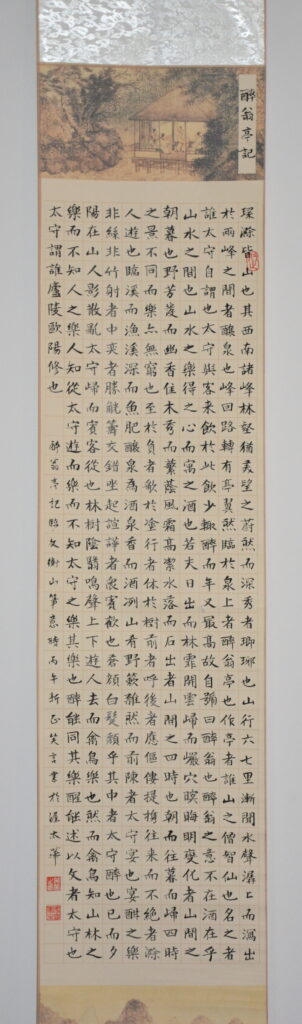 醉翁亭記
環滁皆山也其西南諸峰林壑猶美望之蔚然而深秀者瑯琊也山行六七里漸聞水聲潺〻而瀉出
於兩峰之間者釀泉也峰回路轉有亭翼然臨於泉上者醉翁亭也作亭者誰山之僧智仙也名之者
誰太守自謂也太守與客來飲於此飲少輒醉而年又最高故自號曰醉翁也醉翁之意不在酒在乎
山水之間也山水之樂得之心而寓之酒也若夫日出而林霏開雲歸而巖穴暝晦明變化者山間之
朝暮也野芳發而幽香佳木秀而繁蔭風霜高潔水落而石出者山間之四時也朝而往暮而歸四時
之景不同而樂亦無窮也至於負者歌於塗行者休於樹前者呼後者應傴僂提攜往來而不絕者滁
人遊也臨溪而漁溪深而魚肥釀泉為酒泉香而酒冽山肴野蔌雜然而前陳者太守宴也宴酣之樂
非絲非竹射者中奕者勝觥籌交錯坐起諠譁者眾賓歡也蒼顏白髮頹乎其中者太守醉也已而夕
陽在山人影散亂太守歸而賓客從也林樹陰翳鳴聲上下遊人去而禽鳥樂也然而禽鳥知山林之
樂而不知人之樂人知從太守遊而樂而不知太守之樂其樂也醉能同其樂醒能述以文者太守也
太守謂誰廬陵歐陽修也
醉翁亭記臨文衡山筆意時丙午新正笑言書於渥太華